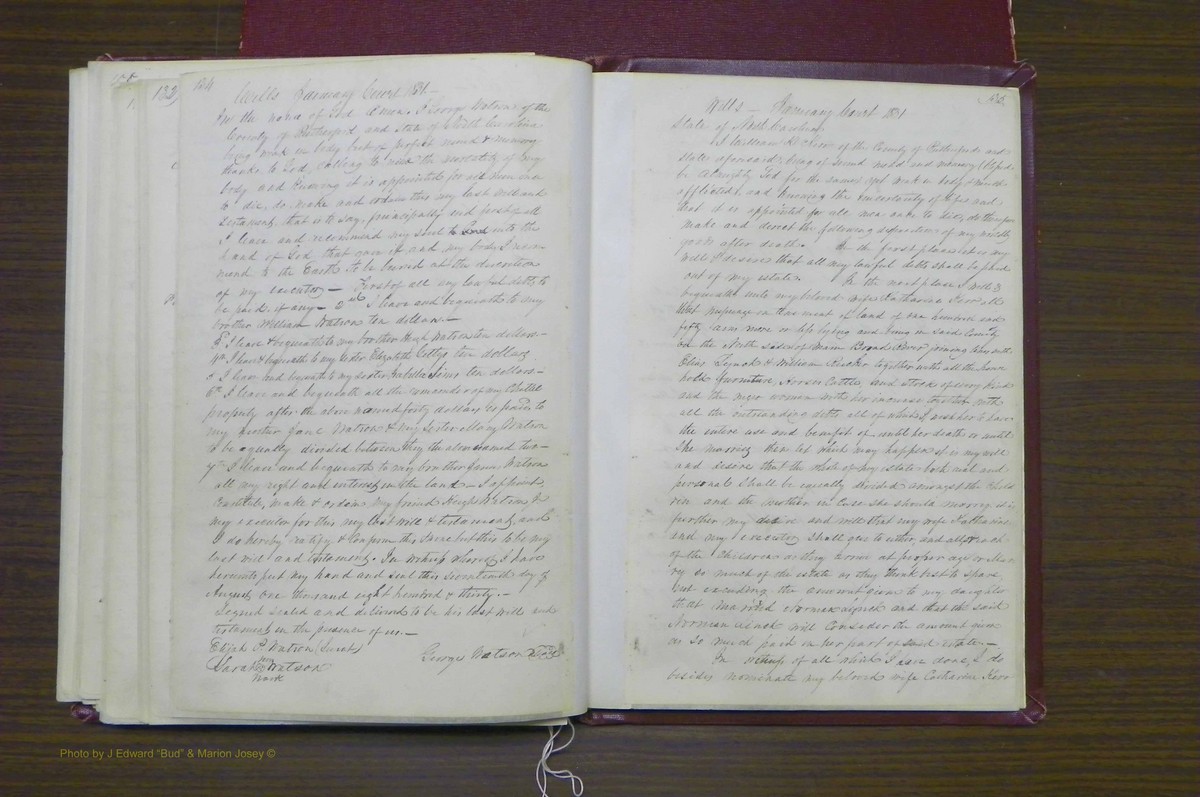 134
Wills January Court 1831 —
In the name of God Amen. I George Watson of the
County of Rutherford and State of North Carolina
being weak in body but of perfect mind & memory
thanks to God, calling to mind the mortality of my
body and knowing it is appointed for all men once
to die, do make and ordain this my last will and
testament, that is to say, principally and first of all
I leave and recommend my soul to and into the
hand of God that gave it and my body I recom
mend to the Earth to be buried at the discretion
of my executors — First of all my lawful debts to
be paid, if any — 2nd I leave and bequeath to my
brother William Watson ten dollars. —
3 I leave & bequeath to my brother Hugh Watson ten dollars —
4th I leave & bequeath to my sister Elizabeth ten dollars
5 I leave and bequeath to my sister Isabella ten dollars —
6th I leave and bequeath all the remainder of my
property after the above named forty dollars is paid to
my mother Jane Watson & my sister Mary Watson
to be equally divided between they the above named two —
7th I leave and bequeath to my brother James Watson
all my right and interest in the land — I appoint,
constitute, make & ordain my friend Hugh Watson Jr
my executor for this my last will & testament, and
I do hereby ratify & confirm this same but this to be my
last will and testament. In witness whereof I have
hereunto put my hand and seal this seventeenth day of
August one thousand eight hundred & thirty. —
Signed sealed and delivered to be his last will and
testament in the presence of us. —
Elijah P. Watson (Jurat)
George Watson Seal
Sarah her Watson
mark
132
135
Wills — January Court 1831
State of North Carolina
I William of the County of Rutherford and
state aforesaid; being of sound mind and memory (blessed
be Almighty God for the same) yet weak in body & much
afflicted, and knowing the uncertainty of life and
that it is appointed for all men once to die, do therefore
make and direct the following disposition of my worldly
goods after death. In the first place it is my
will & desire that all my lawful debts shall be paid
out of my estate. In the next place I will &
bequeath unto my beloved wife Catharine all
that messuage or tenement of land of one hundred and
fifty acres more or less lying and being in said County
on the North side of Main Broad River joining
Elias Lynch & William together with all the house
hold furniture, Horses Cattle, and stock of every kind
and the negro woman with her increase together with
all the outstanding debts, all of which I wish her to have
the entire use and benefit of until her death or until
she marries then let which may happen it is my will
and desire that the whole of my estate both real and
personal shall be equally divided amongst the child
ren and the mother in case she should marry it is
further my desire and will that my wife Catharine
and my executor shall give to either, and all or each
of the children as they come at proper age or Mar
ry so much of the estate as they think best to spare
but excluding the amount given to my daughter
that married Norman and that the said
Norman will consider the amount given
as so much paid in her part of said estate. —
In witness of all which I have done, I do
besides nominate my beloved wife Catharine
Photo by J Edward "Bud" & Marion Josey ©